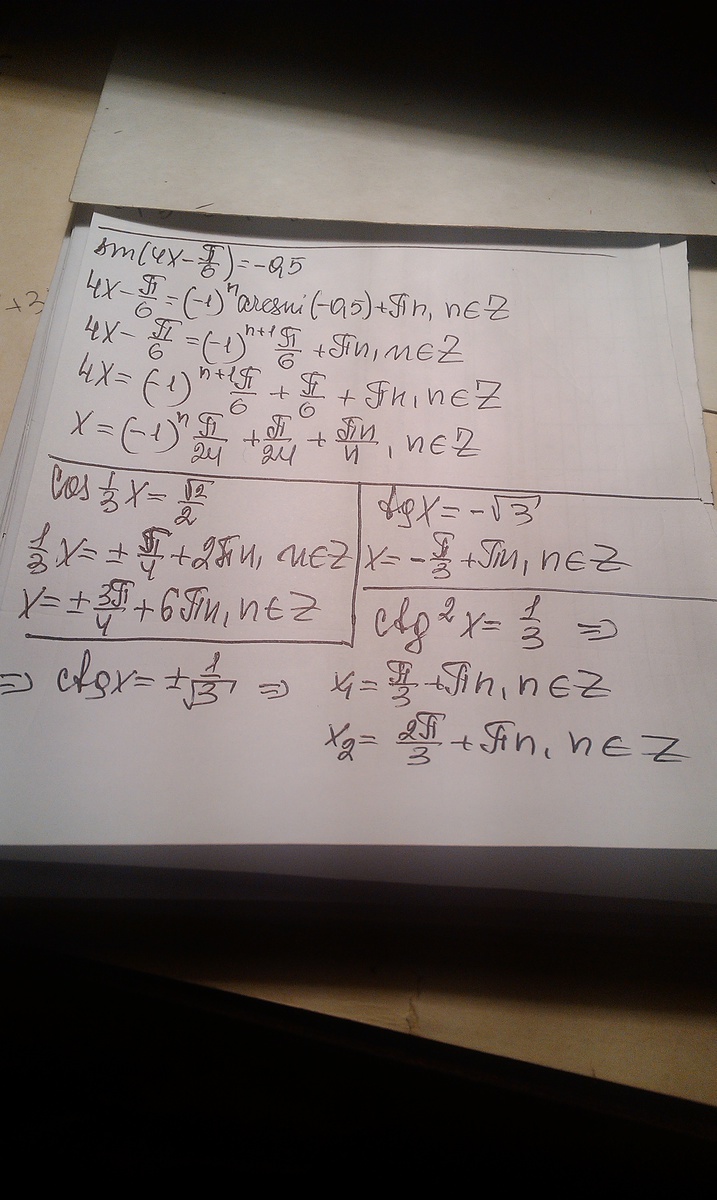 sin(4x - π/6) = -0,5
4x - π/6 = (-1)ⁿ arcsin(-0,5) + πn, n∈Z
4x - π/6 = (-1)ⁿ⁺¹ π/6 + πn, n∈Z
4x = (-1)ⁿ⁺¹ π/6 + π/6 + πn, n∈Z
x = (-1)ⁿ π/24 + π/24 + πn/4, n∈Z
cos 1/3 x = √2/2
1/3 x = ± π/4 + 2πn, n∈Z
x = ± 3π/4 + 6πn, n∈Z
tgx = -√3
x = - π/3 + πn, n∈Z
ctg²x = 1/3 ⇒
⇒ ctgx = ± 1/√3 ⇒ x₁ = π/3 + πn, n∈Z
x₂ = 2π/3 + πn, n∈Z
+3